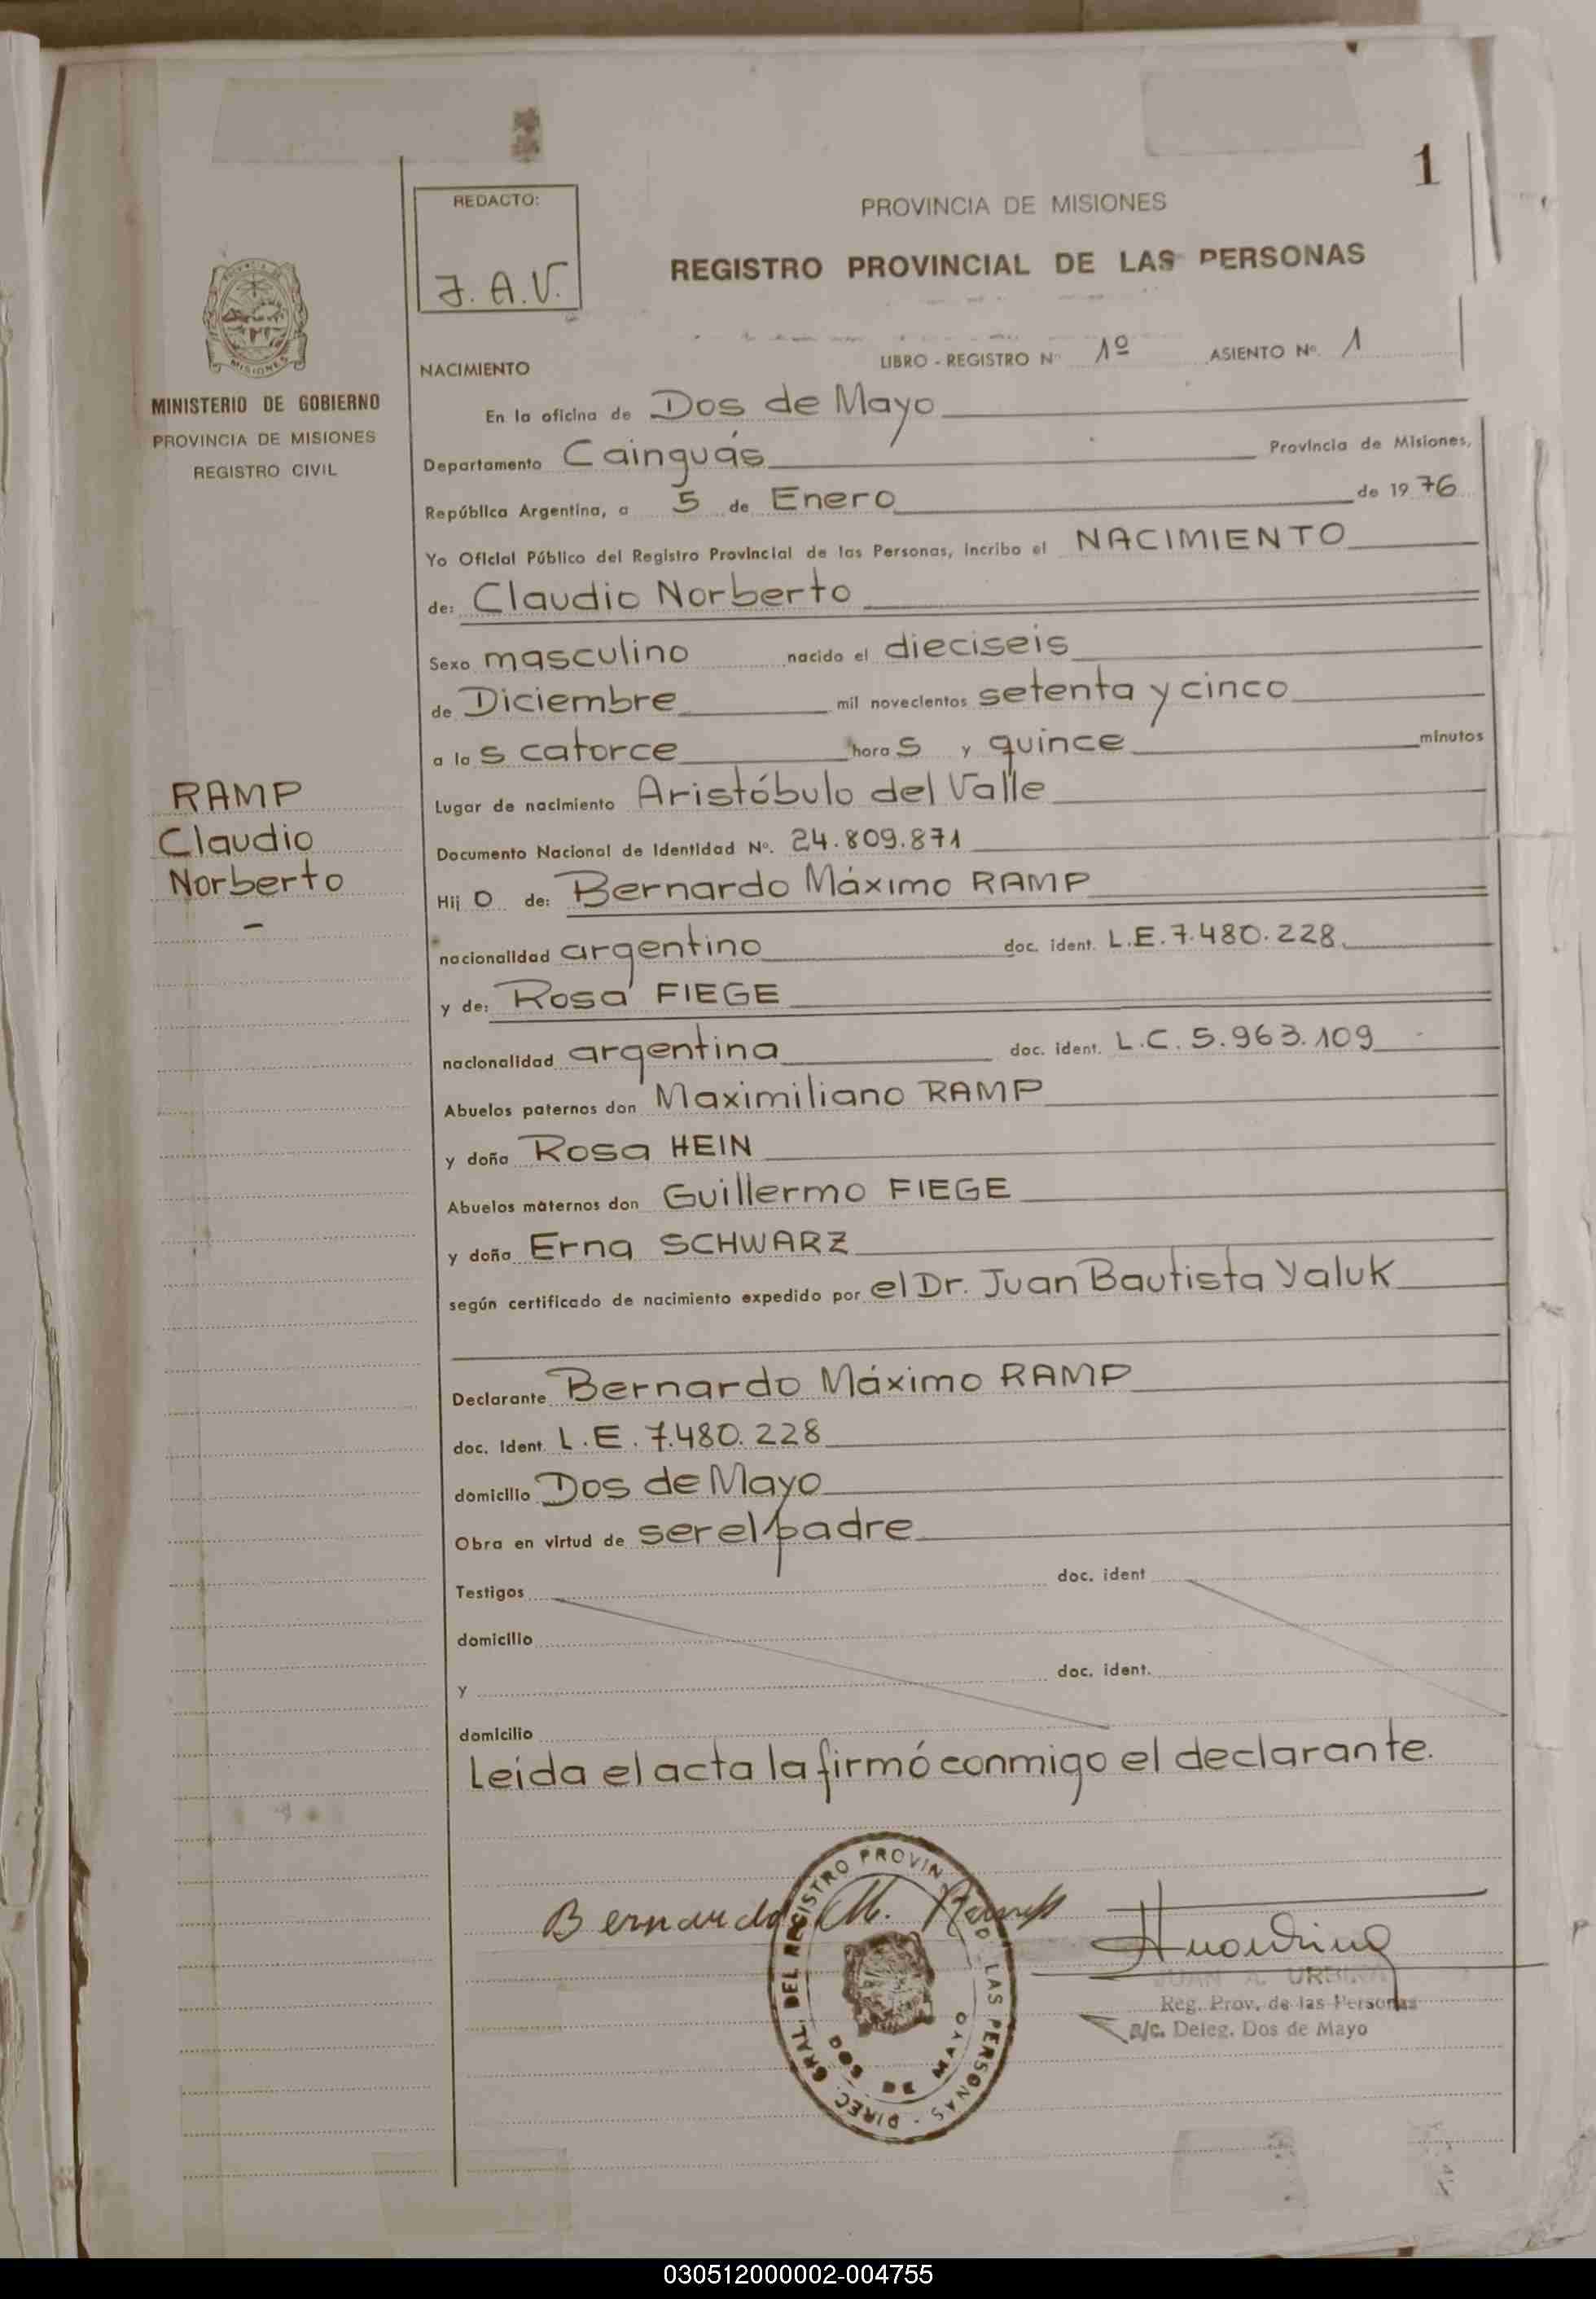 1
REDACTO:
J.A.V.
PROVINCIA DE MISIONES
REGISTRO PROVINCIAL DE LAS PERSONAS
MISIONES
MINISTERIO DE GOBIERNO
PROVINCIA DE MISIONES
REGISTRO CIVIL
NACIMIENTO LIBRO - REGISTRO Nº 1º ASIENTO Nº. 1
En la oficina de Dos de Mayo
Departamento Cainguás Provincia de Misiones,
República Argentina, a 5 de Enero de 1976
Yo Oficial Público del Registro Provincial de las Personas, incribo el NACIMIENTO
de: Claudio Norberto
Sexo masculino nacido el dieciseis
de Diciembre mil novecientos setenta y cinco
a las catorce horas y quince minutos
RAMP
Claudio
Norberto
-
Lugar de nacimiento Aristóbulo del Valle
Documento Nacional de Identidad Nº. 24.809.871
Hijo de: Bernardo Máximo RAMP
nacionalidad argentino doc. ident. L.E. 7.480.228
y de: Rosa FIEGE
nacionalidad argentina doc. ident. L.C. 5.963.109
Abuelos paternos don Maximiliano RAMP
y doña Rosa HEIN
Abuelos maternos don Guillermo FIEGE
y doña Erna SCHWARZ
según certificado de nacimiento expedido por el Dr. Juan Bautista Yaluk
Declarante Bernardo Máximo RAMP
doc. Ident. L.E. 7.480.228
domicilio Dos de Mayo
Obra en virtud de ser el padre
Testigos doc. ident
domicilio
y doc. ident.
domicilio
Leída el acta la firmó conmigo el declarante.
Bernardo M. Ramp
DIREC. GRAL. DEL REGISTRO PROVIN. D LAS PERSONAS -
DOS DE MAYO
JUAN A. URBINA
Reg. Prov. de las Personas
a/c. Deleg. Dos de Mayo
030512000002-004755